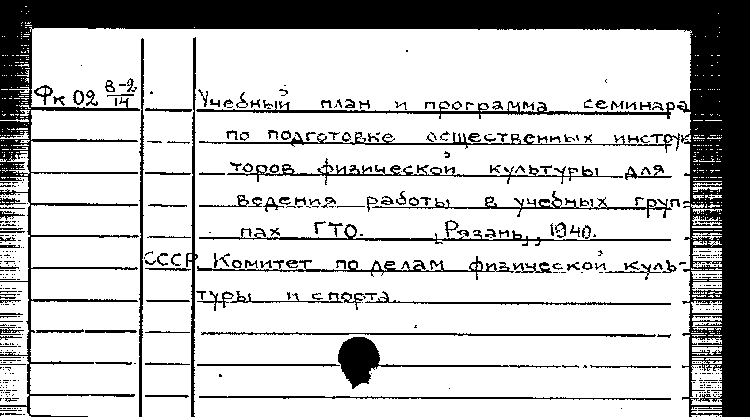 Фк 02 В-2/14 Учебный план и программа семинара
по подготовке общественных инструк
торов физической культуры для
ведения работы в учебных груп-
пах ГТО. [Рязань], 1940.
СССР Комитет по делам физической куль-
туры и спорта.